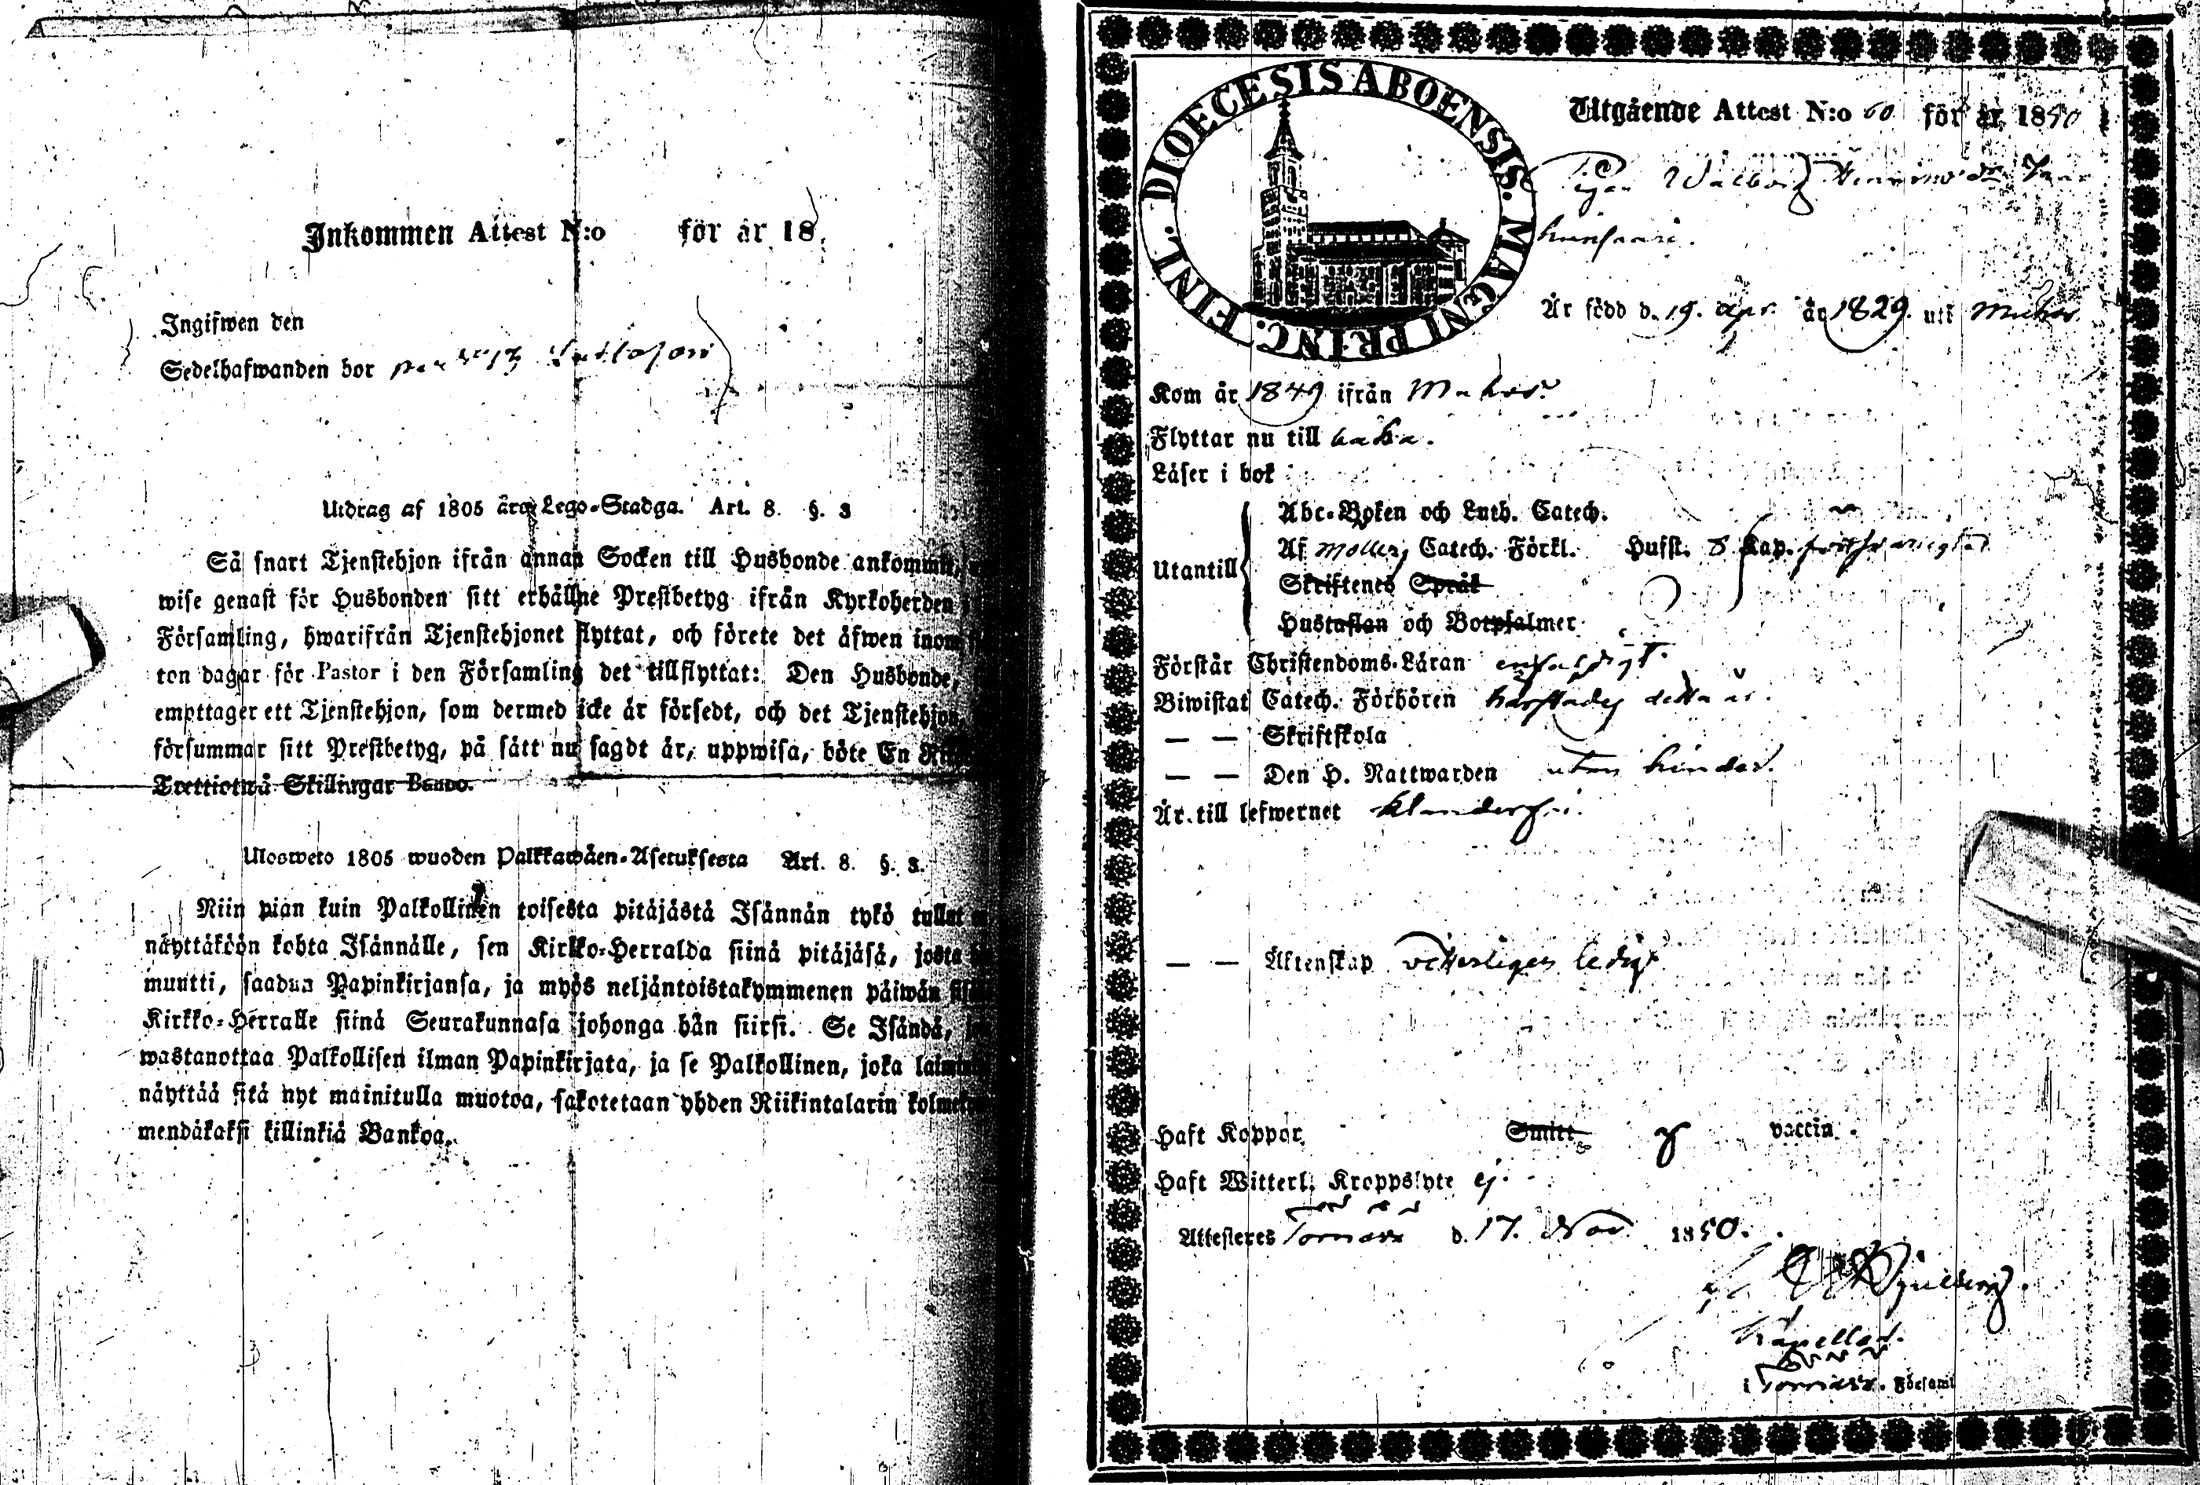 Inkommen Attest N:o för år 18
Ingifwen den
Sedelhafwanden bor
Utdrag af 1805 års Lego-Stadga. Art. 8. §. 3
Så snart Tjenstehjon ifrån annan Socken till Husbonde ankommit,
wise genast för Husbonden sitt erhållne Prestbetyg ifrån Kyrkoherden
Församling, hwarifrån Tjenstehjonet flyttat, och förete det äfwen inom
ton dagar för Pastor i den Församling det tillflyttat: Den Husbonde,
emottager ett Tjenstehjon, som dermed icke är försedt, och det Tjenstehjon,
försummar sitt Prestbetyg, på sätt nu sagdt är, uppwisa, böte En
Trettiotwå Skillingar Banco.
Ulosweto 1805 wuoden Palkkawäen-Asetuksesta Art. 8. §. 3.
Niin pian kuin Palkollinen toisesta pitäjästä Isännän tykö tullut
näyttäköön kohta Isännälle, sen Kirkko-Herralda siinä pitäjäsä, josta
muutti, saadun Papinkirjansa, ja myös neljäntoistakymmenen päiwän
Kirkko-Herralle siinä Seurakunnasa johonga hän siirsi. Se Isändä,
wastanottaa Palkollisen ilman Papinkirjata, ja se Palkollinen, joka
näyttää sitä nyt mainitulla muotoa, sakotetaan yhden Riikintalarin
mendäkaksi killinkiä Bankoa.
DIOECESIS ABOENSIS. MAGNI PRINC. FINL.
Utgående Attest N:o 60 för år 1850
Pigan Walborg
Är född d. 19. Apr. år 1829. uti Muhos
Kom år 1849 ifrån Muhos
Flyttar nu till
Läser i bok
Abc-Boken och Luth. Catech.
Utantill
Af Catech. Förkl. Husst. 8 Kap.
Skriftenes Språk
Hustaflan och Botpsalmer
Förstår Christendoms-Läran enfaldigt.
Biwistat Catech. Förhören härstädes detta år.
— — Skriftskola
— — Den H. Nattwarden utan hinder.
Är till lefwernet klanderfri.
— — Äktenskap vitterligen ledig
Haft Koppor Smitt vaccin.
Haft Witterl. Kroppslyte ej.
Attesteres Torneå d. 17. Nov. 1850.
Kapellan.
i Torneå. Församl